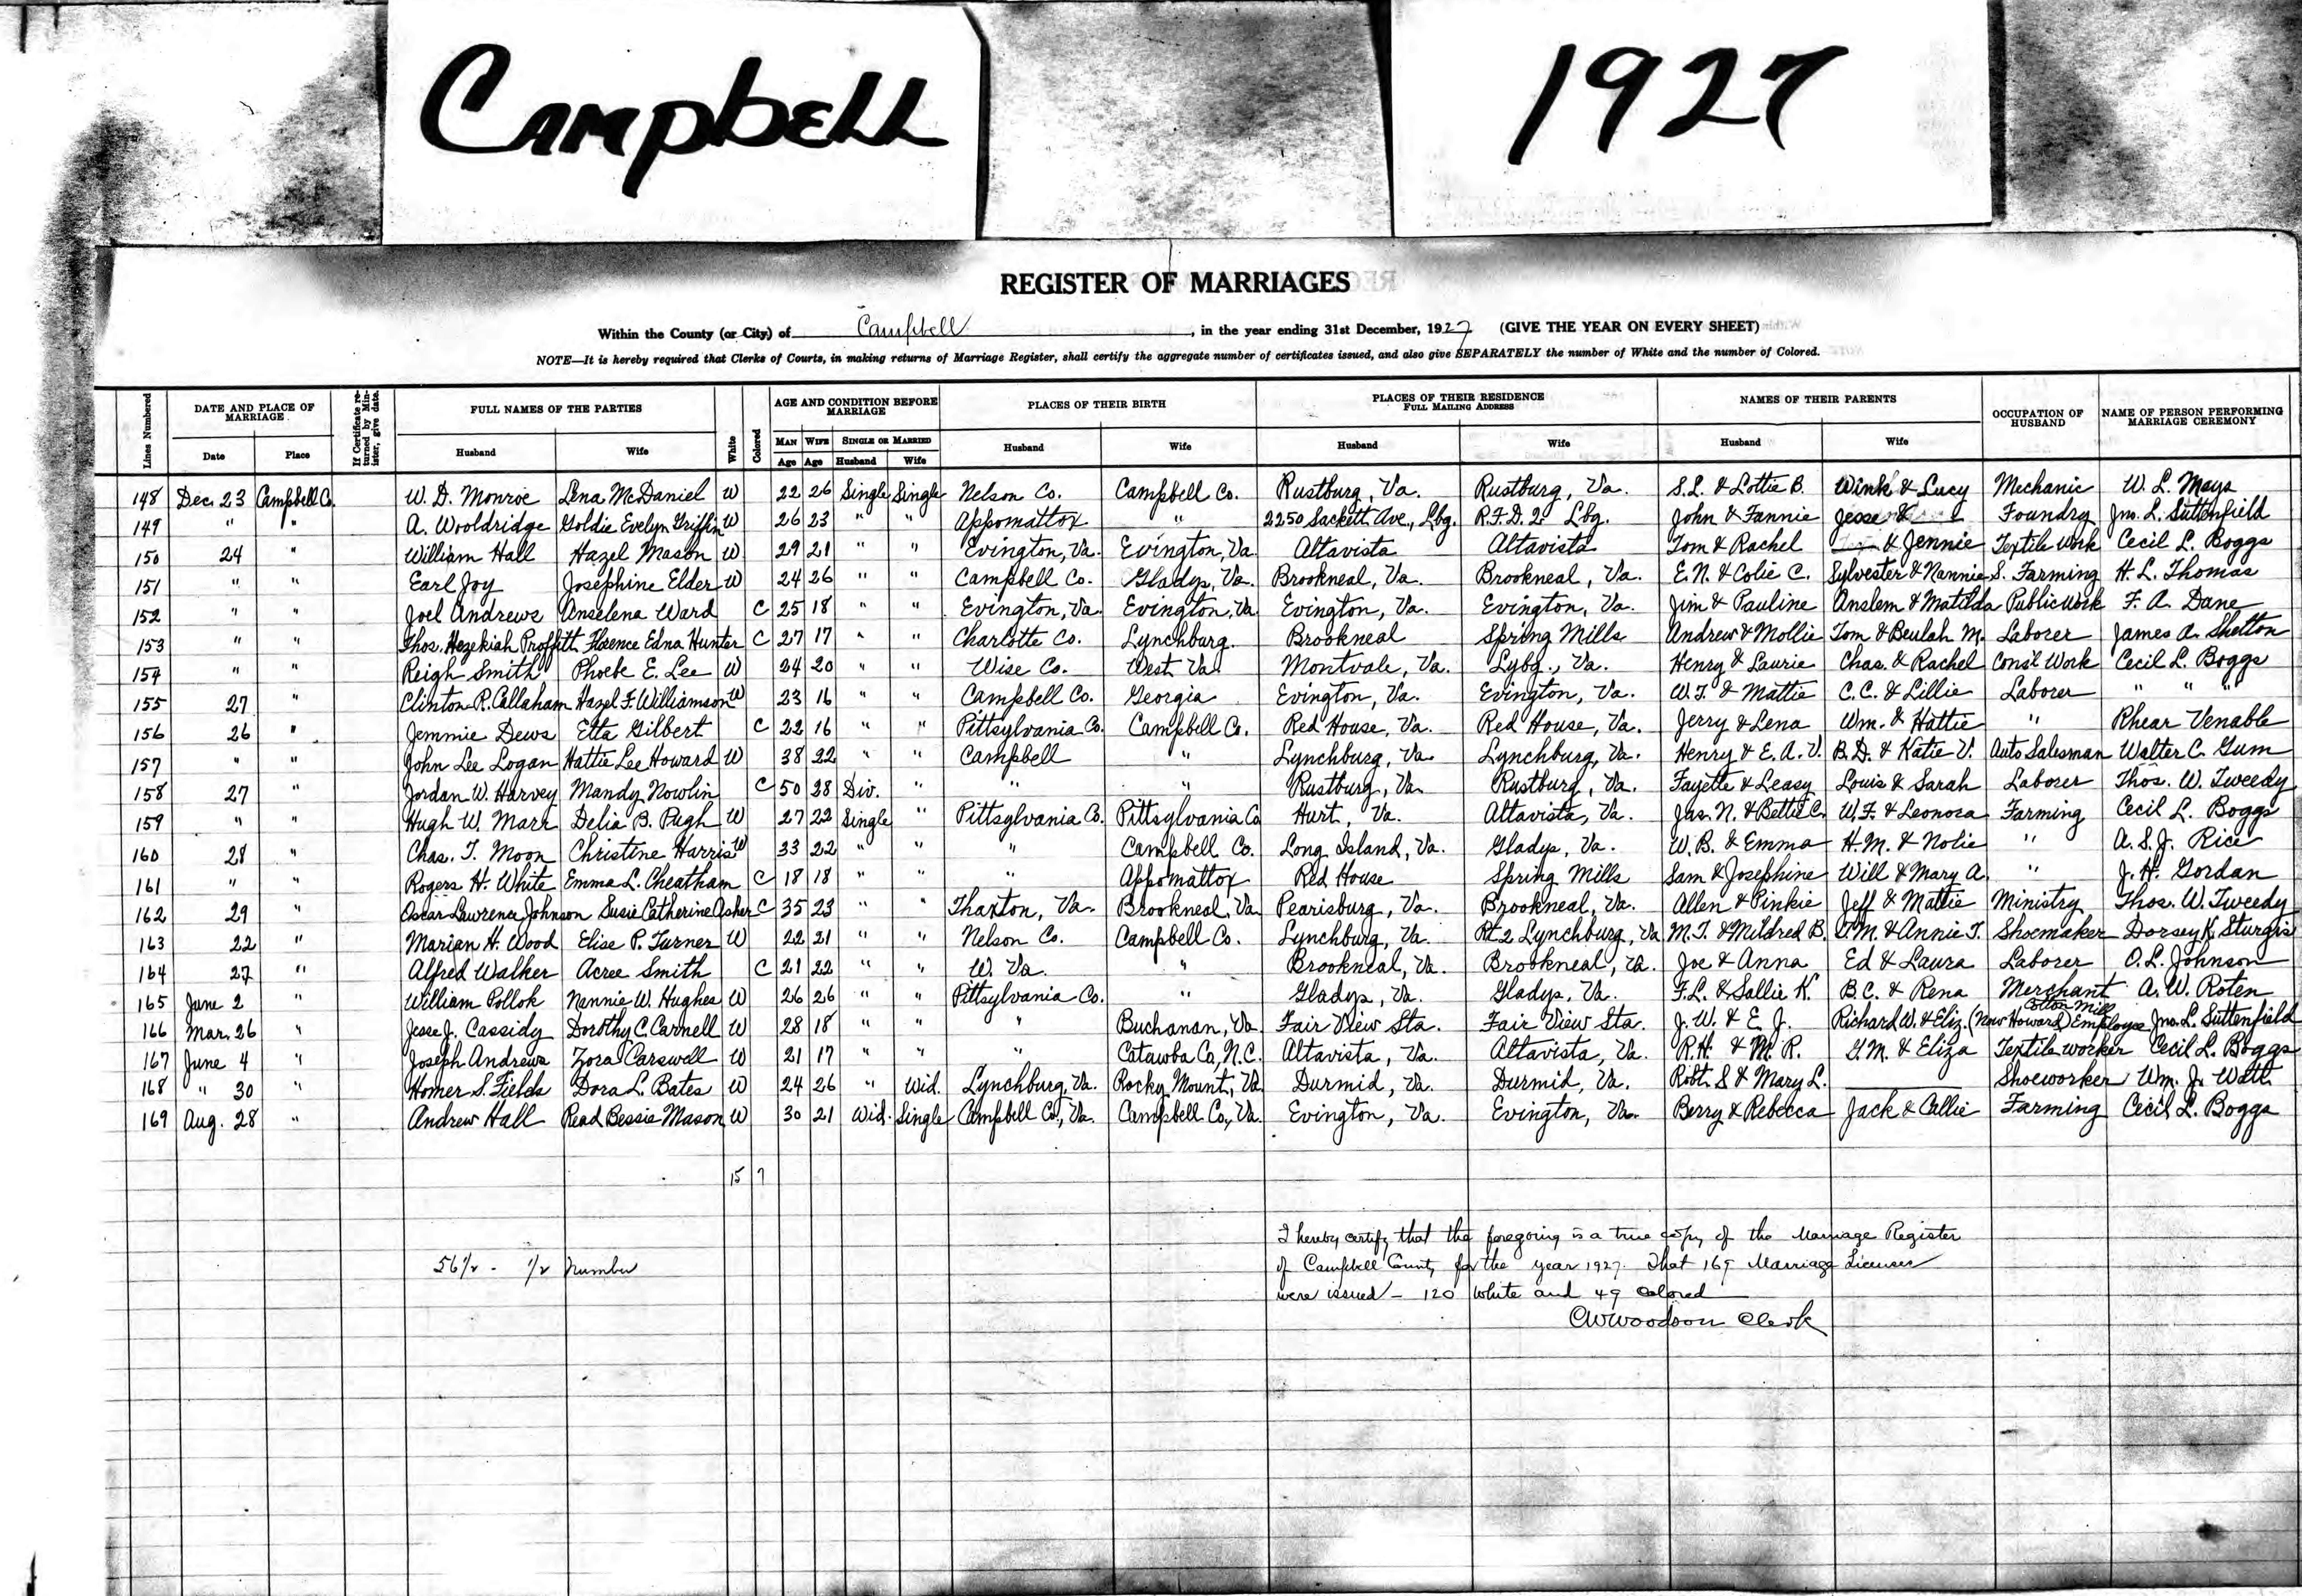 CAMPBELL
1927
REGISTER OF MARRIAGES
Within the County (or City) of Campbell, in the year ending 31st December, 1927 (GIVE THE YEAR ON EVERY SHEET)
NOTE—It is hereby required that Clerks of Courts, in making returns of Marriage Register, shall certify the aggregate number of certificates issued, and also give SEPARATELY the number of White and the number of Colored.
Lines Numbered DATE AND PLACE OF MARRIAGE If Certificate returned by Minister, give date. FULL NAMES OF THE PARTIES White Colored AGE AND CONDITION BEFORE MARRIAGE PLACES OF THEIR BIRTH PLACES OF THEIR RESIDENCE FULL MAILING ADDRESS NAMES OF THEIR PARENTS OCCUPATION OF HUSBAND NAME OF PERSON PERFORMING MARRIAGE CEREMONY
Date Place Husband Wife MAN WIFE SINGLE OR MARRIED Husband Wife Husband Wife Husband Wife
Age Age Husband Wife
148 Dec. 23 Campbell Co. W. D. Monroe Lena McDaniel W 22 26 Single Single Nelson Co. Campbell Co. Rustburg, Va. Rustburg, Va. S.L. & Lottie B. Wink & Lucy Mechanic W. L. Mays
149 " " A. Wooldridge Goldie Evelyn Griffin W 26 23 " " Appomattox " 2250 Sackett Ave., Lbg. R.F.D. 2 Lbg. John & Fannie Jesse & Foundry Jno. L. Suttenfield
150 24 " William Hall Hazel Mason W 29 21 " " Evington, Va. Evington, Va. Altavista Altavista Tom & Rachel & Jennie Textile Work Cecil L. Boggs
151 " " Earl Joy Josephine Elder W 24 26 " " Campbell Co. Gladys, Va. Brookneal, Va. Brookneal, Va. E. N. & Colie C. Sylvester & Nannie S. Farming H. L. Thomas
152 " " Joel Andrews Anselena Ward C 25 18 " " Evington, Va. Evington, Va. Evington, Va. Evington, Va. Jim & Pauline Anslem & Matilda Public Work F. A. Dane
153 " " Thos. Hezekiah Proffitt Florence Edna Hunter C 27 17 " " Charlotte Co. Lynchburg. Brookneal Spring Mills Andrew & Mollie Tom & Beulah M. Laborer James A. Shelton
154 " " Reigh Smith Phoebe E. Lee W 24 20 " " Wise Co. West Va. Montvale, Va. Lybg., Va. Henry & Laurie Chas. & Rachel Cons't Work Cecil L. Boggs
155 27 " Clinton R. Callaham Hazel F. Williamson W 23 16 " " Campbell Co. Georgia Evington, Va. Evington, Va. W. T. & Mattie C. C. & Lillie Laborer " " "
156 26 " Jemmie Dews Etta Gilbert C 22 16 " " Pittsylvania Co. Campbell Co. Red House, Va. Red House, Va. Jerry & Lena Wm. & Hattie " Rhear Venable
157 " " John Lee Logan Hattie Lee Howard W 38 22 " " Campbell " Lynchburg, Va. Lynchburg, Va. Henry & E. A. V. B. D. & Katie V. Auto Salesman Walter C. Gum
158 27 " Jordan W. Harvey Mandy Nowlin C 50 28 Div. " " " Rustburg, Va. Rustburg, Va. Fayette & Leasy Louis & Sarah Laborer Thos. W. Tweedy
159 " " Hugh W. Marr Delia B. Pugh W 27 22 Single " Pittsylvania Co. Pittsylvania Co Hurt, Va. Altavista, Va. Jas. N. & Bettie C. W. F. & Leonora Farming Cecil L. Boggs
160 28 " Chas. T. Moon Christine Harris W 33 22 " " " Campbell Co. Long Island, Va. Gladys, Va. W. B. & Emma H. M. & Nolie " A. S. J. Rice
161 " " Rogers H. White Emma L. Cheatham C 18 18 " " " Appomattox Red House Spring Mills Sam & Josephine Will & Mary A. " J. H. Gordan
162 29 " Oscar Lawrence Johnson Susie Catherine Asher C 35 23 " " Thaxton, Va. Brookneal, Va. Pearisburg, Va. Brookneal, Va. Allen & Pinkie Jeff & Mattie Ministry Thos. W. Tweedy
163 22 " Marian H. Wood Elise P. Turner W 22 21 " " Nelson Co. Campbell Co. Lynchburg, Va. Rt 2 Lynchburg, Va M. T. & Mildred B. J. M. & Annie T. Shoemaker Dorsey K. Sturgis
164 27 " Alfred Walker Acree Smith C 21 22 " " W. Va. " Brookneal, Va. Brookneal, Va. Joe & Anna Ed & Laura Laborer O. L. Johnson
165 June 2 " William Pollok Nannie W. Hughes W 26 26 " " Pittsylvania Co. " Gladys, Va. Gladys, Va. F. L. & Sallie K. B. C. & Rena Merchant A. W. Roten
166 Mar. 26 " Jesse J. Cassidy Dorothy C. Carnell W 28 18 " " " Buchanan, Va Fair View Sta. Fair View Sta. J. W. & E. J. Richard W. & Eliz. (Now Howard) Cotton Mill Employee Jno. L. Suttenfield
167 June 4 " Joseph Andrews Zora Carswell W 21 17 " " " Catawba Co, N.C. Altavista, Va. Altavista, Va. R. H. & M. R. G. M. & Eliza Textile worker Cecil L. Boggs
168 " 30 " Homer S. Fields Dora L. Bates W 24 26 " Wid. Lynchburg, Va. Rocky Mount, Va Durmid, Va. Durmid, Va. Robt. S & Mary L. Shoeworker Wm. J. Watt
169 Aug. 28 " Andrew Hall Read Bessie Mason W 30 21 Wid. Single Campbell Co., Va. Campbell Co., Va. Evington, Va. Evington, Va. Berry & Rebecca Jack & Callie Farming Cecil L. Boggs
15 7
I hereby certify that the foregoing is a true copy of the Marriage Register
56½ - ½ Number of Campbell County for the year 1927. That 169 Marriage Licenses
were issued - 120 white and 49 colored
CW Woodson Clerk